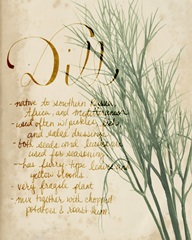 Dill
-native to southern Russia,
Africa, and Mediterranean
-used often w/ pickles, fish
and salad dressings
-both seeds and leaves are
used for seasoning
-has furry-type leaves and
yellow blooms
-very fragile plant
-mix together with chopped
potatoes & roast them